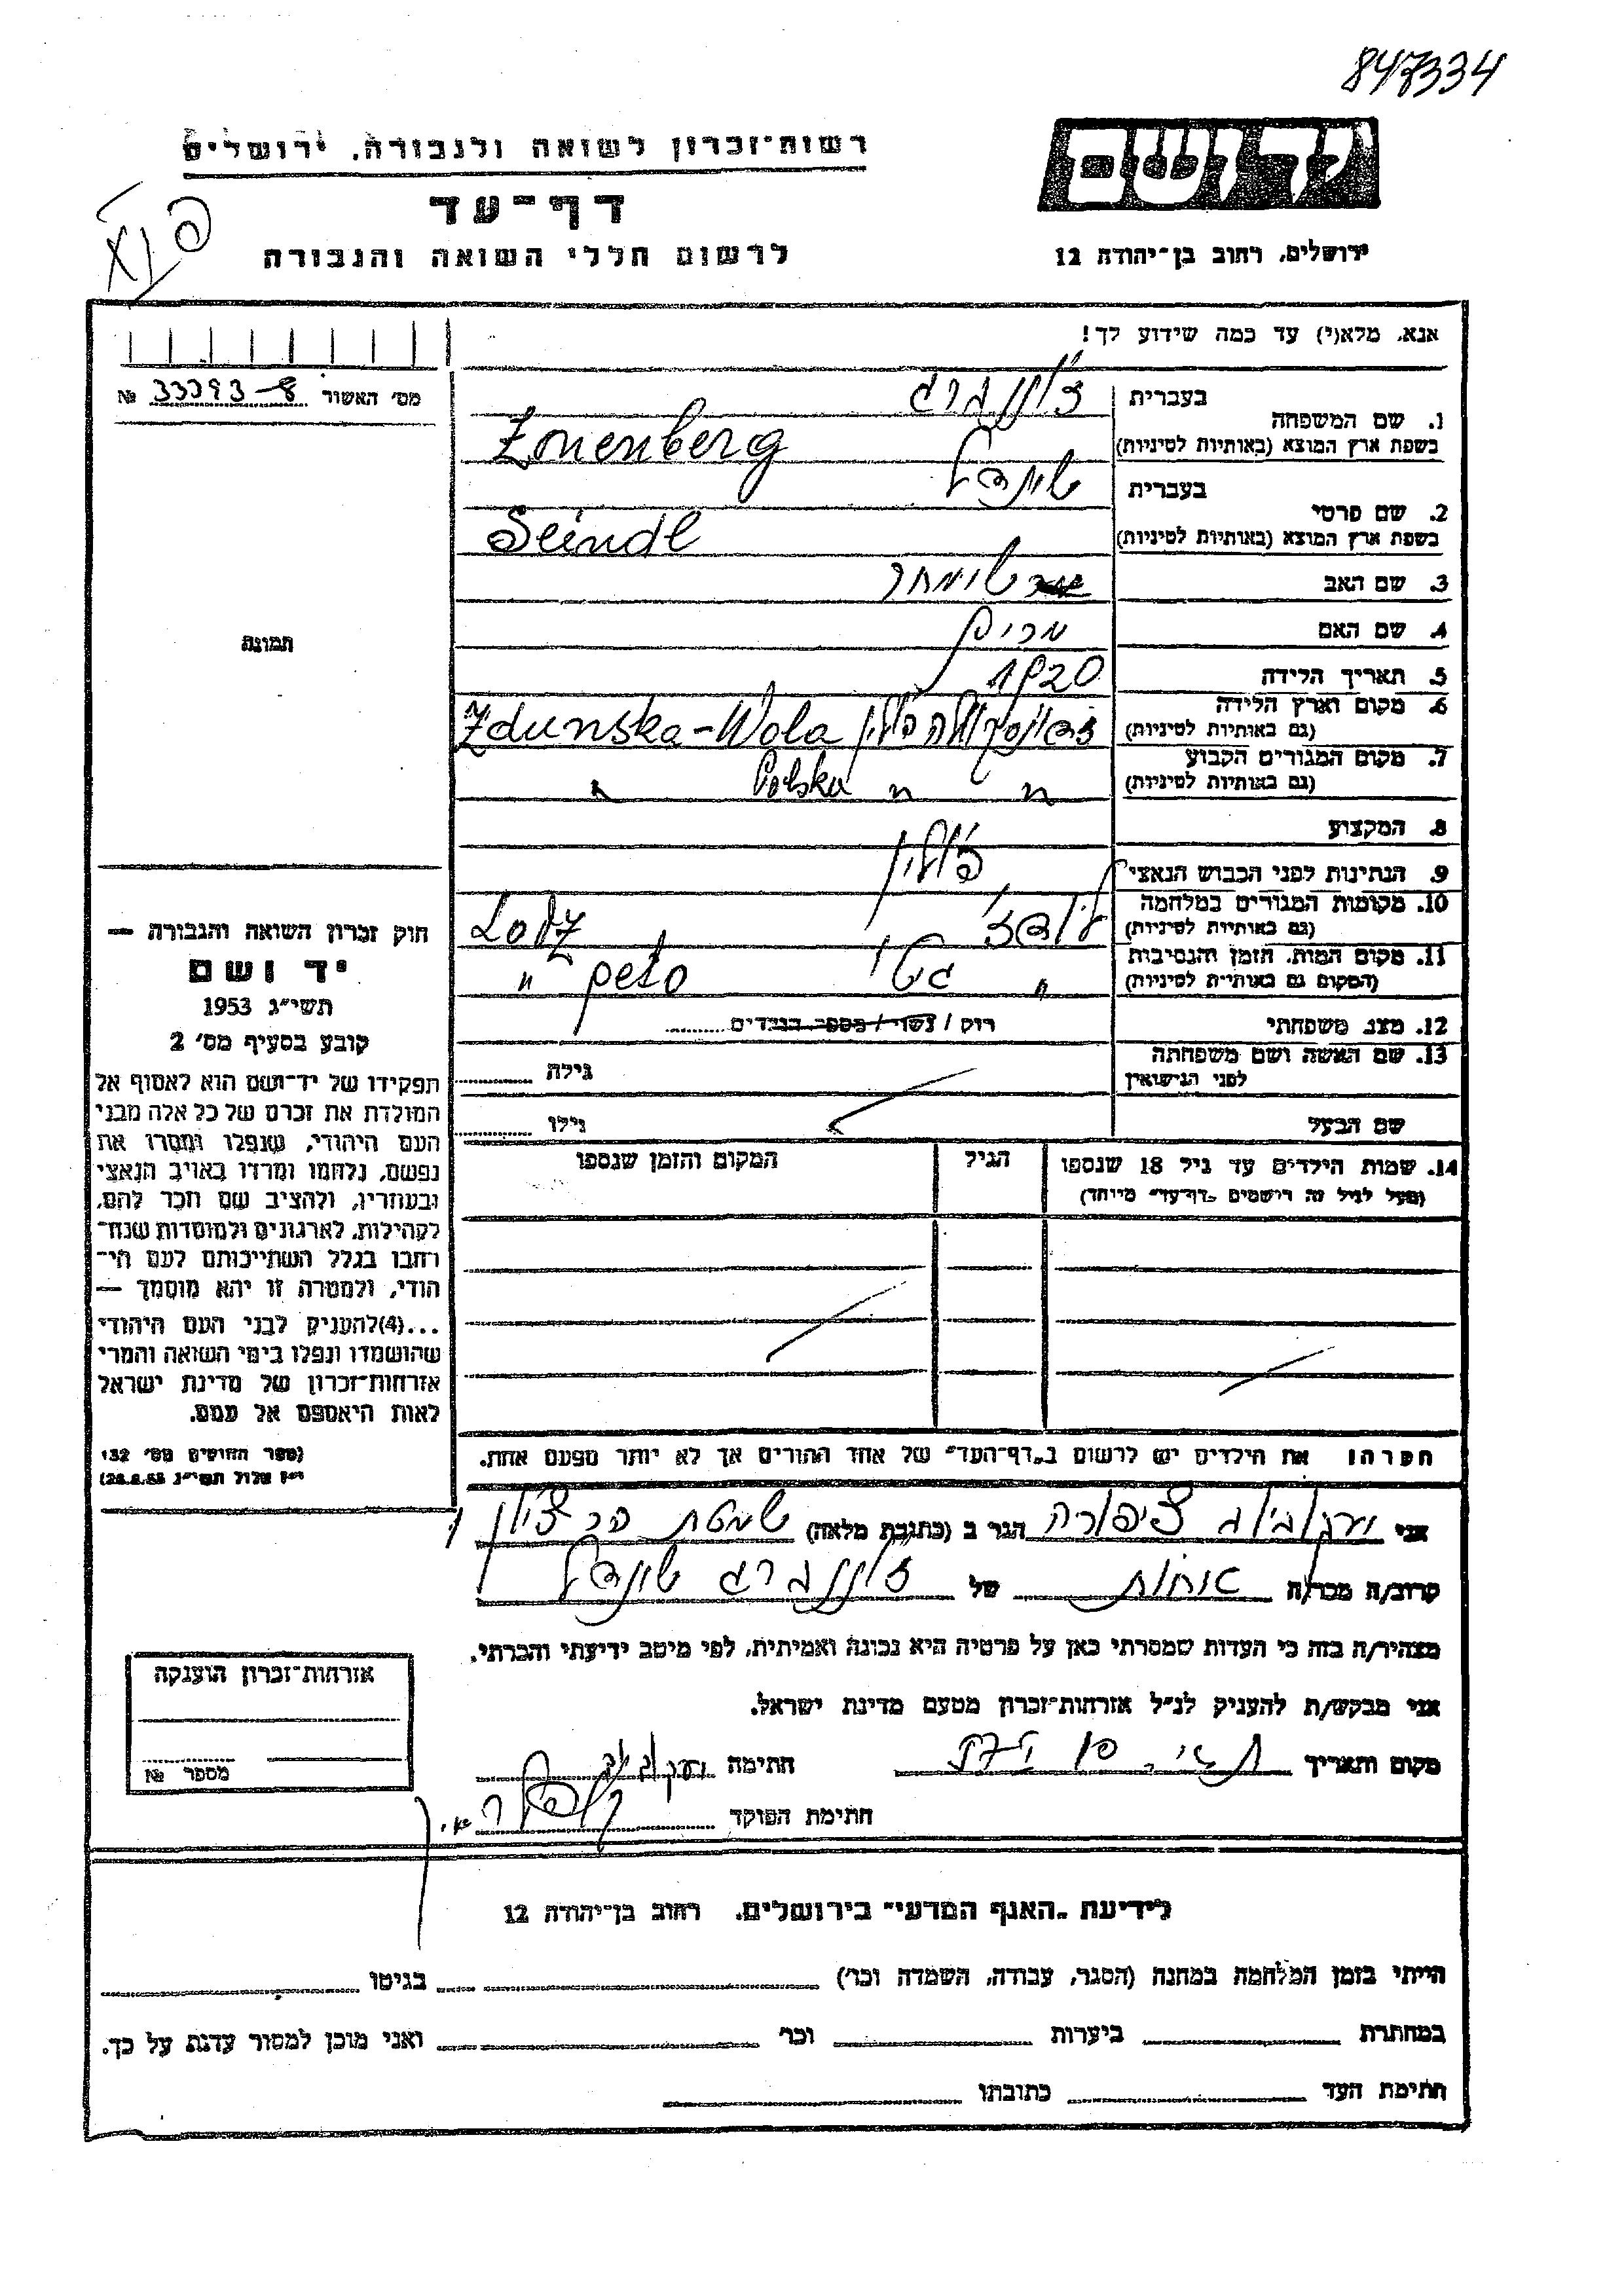 847334
רשות־זכרון לשואה ולגבורה, ירושלים
יד ושם
דף־עד
לרשום חללי השואה והגבורה
ירושלים, רחוב בן־יהודה 12
אנא, מלא(י) עד כמה שידוע לך!
מס' האשור 33393-8 №
תמונה
1. שם המשפחה
בעברית זוננברג
בשפת ארץ המוצא (באותיות לטיניות) Zonenberg
2. שם פרטי
בעברית שיינדל
בשפת ארץ המוצא (באותיות לטיניות) Seindl
3. שם האב
4. שם האם מרים
5. תאריך הלידה 1920
6. מקום וארץ הלידה
(גם באותיות לטיניות) זדונסקה וולה פולין Zdunska-Wola
7. מקום המגורים הקבוע
(גם באותיות לטיניות) " " Polska "
8. המקצוע
9. הנתינות לפני הכבוש הנאצי פולין
10. מקומות המגורים במלחמה
(גם באותיות לטיניות) לודז' Lodz
11. מקום המות, הזמן והנסיבות
(המקום גם באותיות לטיניות) " גיטו " peto
12. מצב משפחתי רוק / נשוי / מספר הנגדים
13. שם האשה ושם משפחתה
לפני הנישואין גילה
שם הבעל גילו
14. שמות הילדים עד גיל 18 שנספו הגיל המקום והזמן שנספו
(מעל לגיל זה רישמים "דף־עד" מיוחד)
חוק זכרון השואה והגבורה —
יד ושם
תשי"ג 1953
קובע בסעיף מס' 2
תפקידו של יד־ושם הוא לאסוף אל
המולדת את זכרם של כל אלה מבני
העם היהודי, שנפלו ומסרו את
נפשם, נלחמו ומרדו באויב הנאצי
ובעוזריו, ולהציב שם וזכר להם,
לקהילות, לארגונים ולמוסדות שנח־
רבו בגלל השתייכותם לעם הי־
הודי, ולמטרה זו יהא מוסמך —
...(4)להעניק לבני העם היהודי
שהושמדו ונפלו בימי השואה והמרי
אזרחות־זכרון של מדינת ישראל
לאות היאספם אל עמם.
(ספר החוקים מס' 132
י"ז אלול תשי"ג 28.8.53)
הערה: את הילדים יש לרשום ב"דף־העד" של אחד ההורים אך לא יותר מפעם אחת.
אני ציפורה הגר ב (כתובת מלאה) הר ציון
קרוב/ה מכר/ה אחות של זוננברג שיינדל
מצהיר/ה בזה כי העדות שמסרתי כאן על פרטיה היא נכונה ואמיתית, לפי מיטב ידיעתי והכרתי.
אני מבקש/ת להעניק לנ"ל אזרחות־זכרון מטעם מדינת ישראל.
מקום ותאריך חתימה
חתימת הפוקד
אזרחות־זכרון הוענקה
מספר №
לידיעת "האגף המדעי" בירושלים, רחוב בן־יהודה 12
הייתי בזמן המלחמה במחנה (הסגר, עבודה, השמדה וכו') בגיטו
במחתרת ביערות וכו' ואני מוכן למסור עדות על כך.
חתימת העד כתובתו